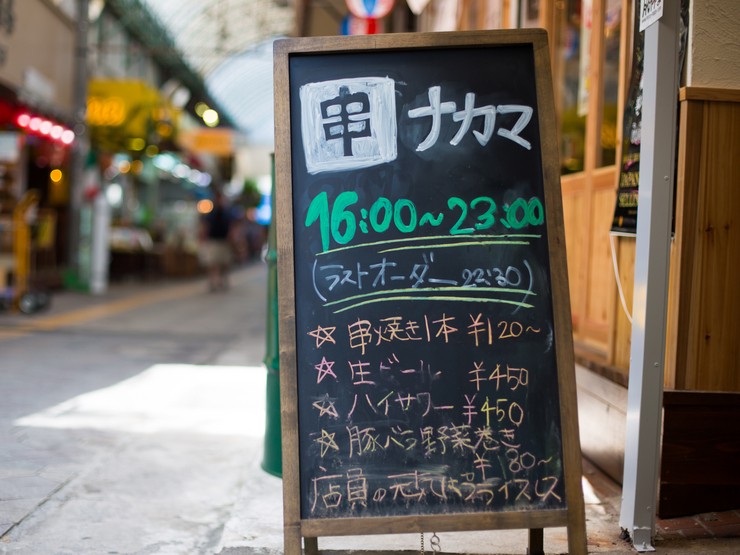 串 ナカマ
16:00~23:00
(ラストオーダー 22:30)
☆串焼き1本 ¥120~
☆生ビール ¥450
☆ハイサワー ¥450
☆豚バラ野菜巻き
¥ 80~
店員の元気はプライスレス
JAPAN